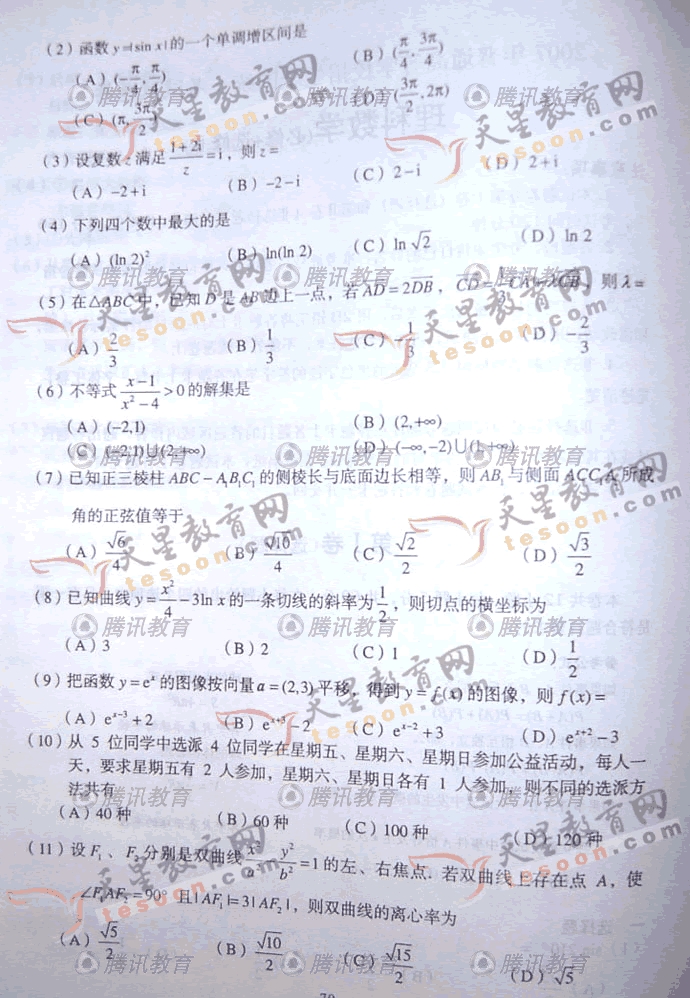 (2) 函数 y=|sin x| 的一个单调增区间是
(A) (-π/4, π/4) (B) (π/4, 3π/4)
(C) (π, 3π/2) (D) (3π/2, 2π)
(3) 设复数 z 满足 (1+2i)/z = i, 则 z =
(A) -2+i (B) -2-i (C) 2-i (D) 2+i
(4) 下列四个数中最大的是
(A) (ln 2)² (B) ln(ln 2) (C) ln √2 (D) ln 2
(5) 在△ABC中, 已知 D 是 AB 边上一点, 若 AD=2DB, CD=1/3 CA+λCB, 则 λ=
(A) 2/3 (B) 1/3 (C) -1/3 (D) -2/3
(6) 不等式 (x-1)/(x²-4) >0 的解集是
(A) (-2,1) (B) (2,+∞)
(C) (-2,1)∪(2,+∞) (D) (-∞,-2)∪(1,+∞)
(7) 已知正三棱柱 ABC-A₁B₁C₁ 的侧棱长与底面边长相等, 则 AB₁ 与侧面 ACC₁A₁ 所成
角的正弦值等于
(A) √6/4 (B) √10/4 (C) √2/2 (D) √3/2
(8) 已知曲线 y= x²/4 -3ln x 的一条切线的斜率为 1/2, 则切点的横坐标为
(A) 3 (B) 2 (C) 1 (D) 1/2
(9) 把函数 y=eˣ 的图像按向量 a=(2,3) 平移, 得到 y=f(x) 的图像, 则 f(x)=
(A) eˣ⁻³+2 (B) eˣ⁺³-2 (C) eˣ⁻²+3 (D) eˣ⁺²-3
(10) 从 5 位同学中选派 4 位同学在星期五、星期六、星期日参加公益活动, 每人一
天, 要求星期五有 2 人参加, 星期六、星期日各有 1 人参加, 则不同的选派方
法共有
(A) 40 种 (B) 60 种 (C) 100 种 (D) 120 种
(11) 设 F₁、F₂ 分别是双曲线 x²/a² - y²/b² =1 的左、右焦点. 若双曲线上存在点 A, 使
∠F₁AF₂=90° 且|AF₁|=3|AF₂|, 则双曲线的离心率为
(A) √5/2 (B) √10/2 (C) √15/2 (D) √5
天星教育网
tesoon.com
腾讯教育